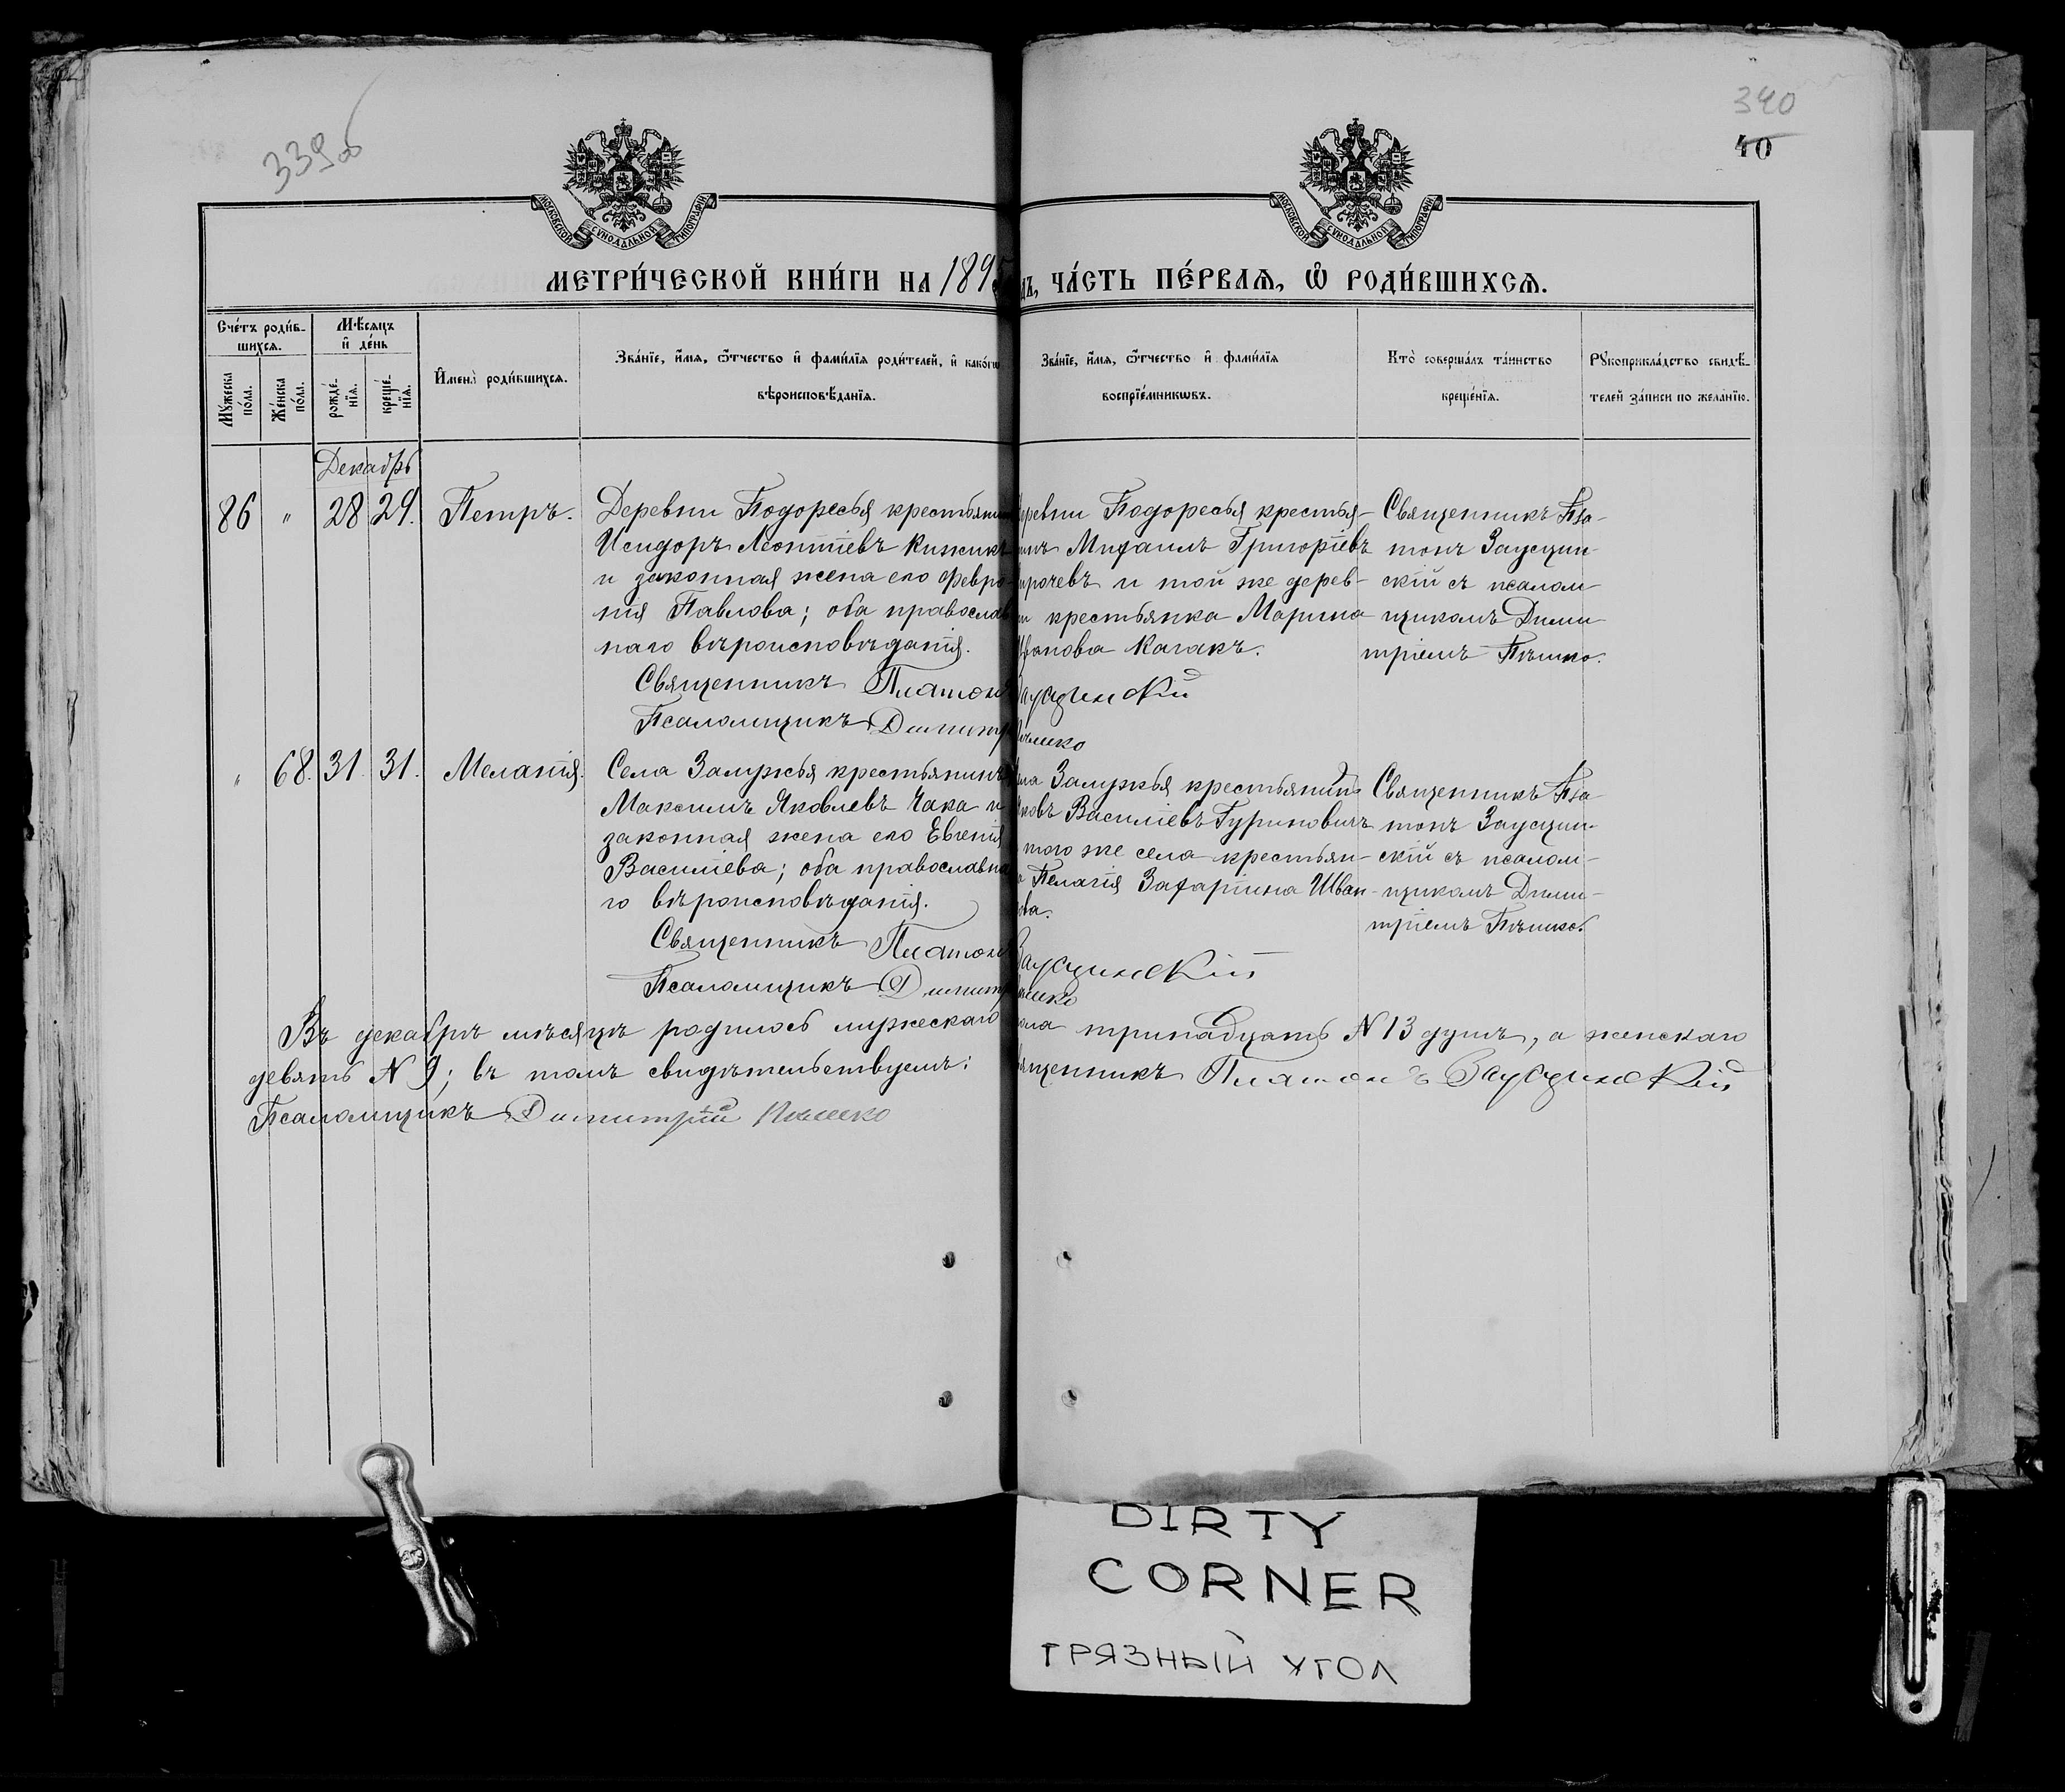 339об
340
40
МОСКОВСКОЙ СѴНОДАЛЬНОЙ ТИПОГРАФІИ
МОСКОВСКОЙ СѴНОДАЛЬНОЙ ТИПОГРАФІИ
МЕТРИ́ЧЕСКОЙ КНИ́ГИ НА 1895 ДЪ, ЧА́СТЬ ПЕ́РВАѦ, Ѽ РОДИ́ВШИХСѦ.
Сче́тъ роди́в-
шихсѧ.
Мꙋ́жеска по́ла.
Же́нска по́ла.
Мѣ́сѧцъ
и҆ де́нь
рожде́-
нїѧ.
креще́-
нїѧ.
И҆мена̀ роди́вшихсѧ.
Зва́нїе, и҆́мѧ, ѻ҆́тчество и҆ фами́лїѧ роди́телей, и҆ како́гѡ
вѣроисповѣ́данїѧ.
Зва́нїе, и҆́мѧ, ѻ҆́тчество и҆ фами́лїѧ
воспрїе́мникѡвъ.
Кто̀ соверша́лъ та́инство
креще́нїѧ.
Рꙋкоприкла́дство свидѣ́-
телей за́писи по жела́нїю.
Декабрь
86 " 28 29. Петръ.
Деревни Подоресья крестьянинъ
Исидоръ Леонтіевъ Кижикъ
и законная жена его Февро-
нія Павлова; оба православ
наго вѣроисповѣданія.
Священникъ Платонъ
Псаломщикъ Димитр
еревни Подоресья крестья-
инъ Михаилъ Григоріевъ
ирочевъ и той же дерев-
и крестьянка Марина
Иванова Кагакъ.
Заусцинскій
Пѣшко
Священникъ Пла-
тонъ Заусцин-
скій съ псалом-
щикомъ Дими-
тріемъ Пѣшко.
" 68. 31. 31. Меланія.
Села Залужья крестьянинъ
Максимъ Яковлевъ Чака и
законная жена его Евгенія
Василіева; оба православна
го вѣроисповѣданія.
Священникъ Платонъ
Псаломщикъ Димитр
ела Залужья крестьянинъ
Яковъ Василіевъ Гуриновичъ
того же села крестьян-
а Пелагія Захаріина Иван-
ова.
Заусцинскій
Пѣшко
Священникъ Пла-
тонъ Заусцин-
скій съ псалом-
щикомъ Дими-
тріемъ Пѣшко.
Въ декабрѣ мѣсяцѣ родилось мужескаго пола тринадцать N 13 душъ, а женскаго
девять N 9; въ томъ свидѣтельствуемъ: Священникъ Платонъ Заусцинскій
Псаломщикъ Димитрій Пѣшко
DIRTY
CORNER
ГРЯЗНЫЙ УГОЛ